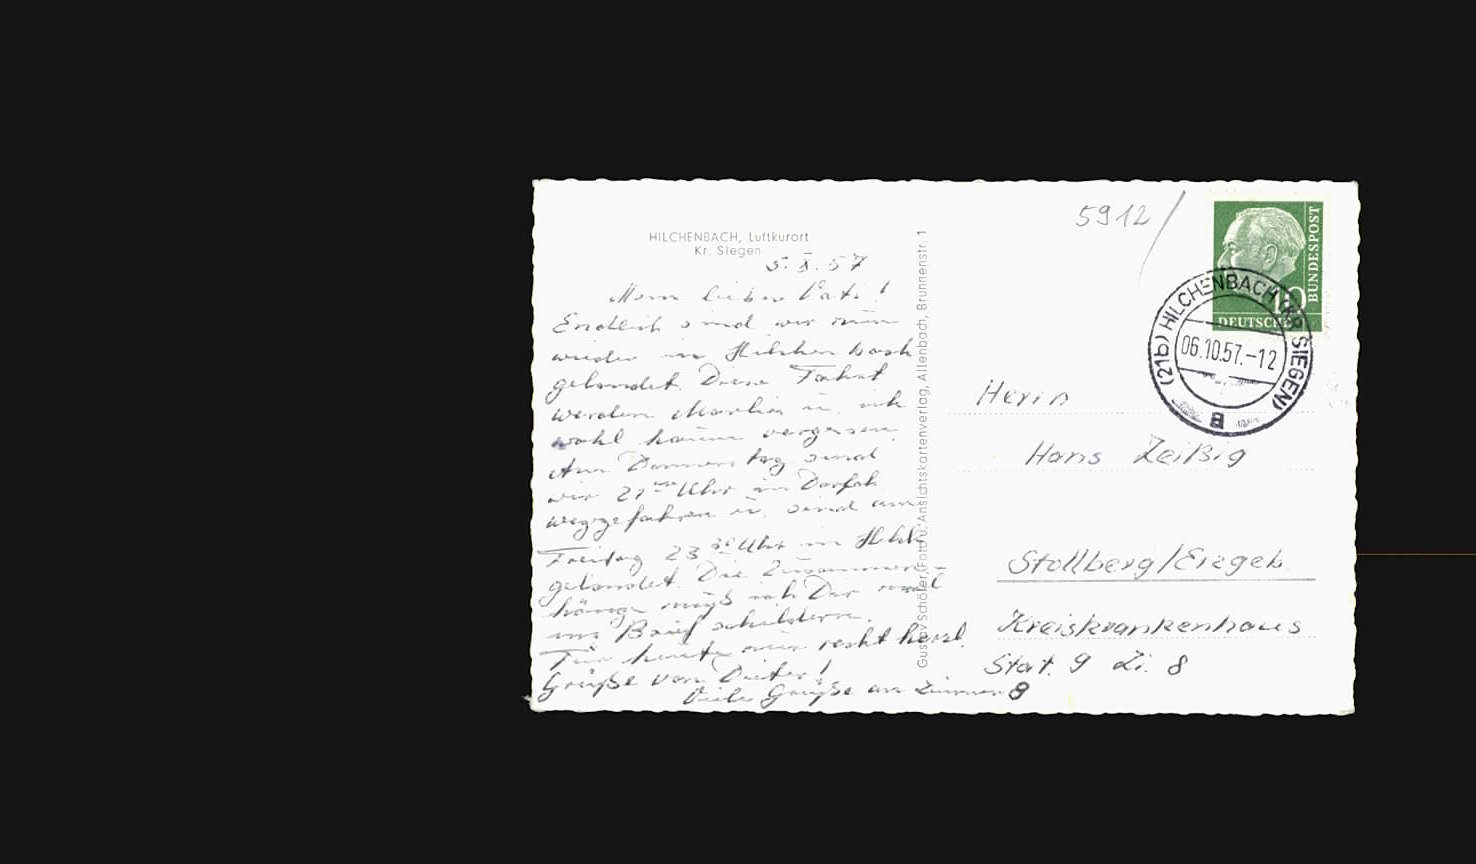 HILCHENBACH, Luftkurort
Kr. Siegen
5. X. 57
Mein lieber Vati!
Endlich sind wir nun
wieder in Hilchenbach
gelandet. Diese Fahrt
werden u. ich
wohl kaum vergessen.
Am Donnerstag sind
wir 21 Uhr in
weggefahren u. sind am
Freitag 23 30 Uhr in Hilch.
gelandet. Die Zusammen-
hänge muß ich Dir mal
im Brief schildern.
Für heute nun recht herzl.
Grüße von Dieter!
Viele Grüße an Zimmer 8
Gustav Schöler, Foto u. Ansichtskartenverlag, Allenbach, Brunnenstr. 1
5912
DEUTSCHE BUNDESPOST
10
(21b) HILCHENBACH (KR SIEGEN)
06.10.57.-12
a
Herrn
Hans Zeißig
Stollberg/Erzgeb.
Kreiskrankenhaus
Stat. 9 Zi. 8